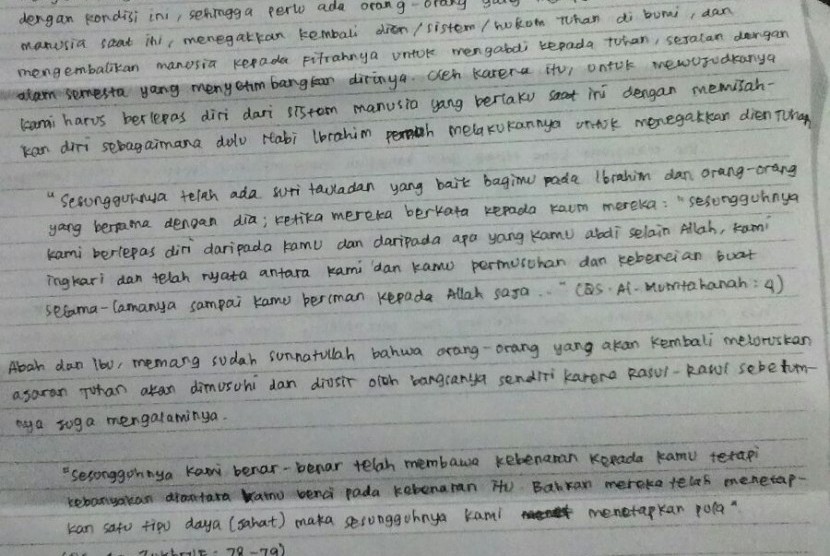 dengan kondisi ini, sehingga perlu ada orang-orang yang
manusia saat ini, menegakkan kembali dien/sistem/hukum Tuhan di bumi, dan
mengembalikan manusia kepada Fitrahnya untuk mengabdi kepada Tuhan, sejalan dengan
alam semesta yang menyeimbangkan dirinya. Oleh karena itu, untuk mewujudkanya
kami harus berlepas diri dari sistem manusia yang berlaku saat ini dengan memisah-
kan diri sebagaimana dulu Nabi Ibrahim pernah melakukannya untuk menegakkan dien Tuhan
"Sesungguhnya telah ada suri tauladan yang baik bagimu pada Ibrahim dan orang-orang
yang bersama dengan dia; ketika mereka berkata kepada kaum mereka: "sesungguhnya
kami berlepas diri daripada kamu dan daripada apa yang kamu abdi selain Allah, kami
ingkari dan telah nyata antara kami dan kamu permusuhan dan kebencian buat
selama-lamanya sampai kamu beriman kepada Allah saja.." (QS. Al-Mumtahanah: 4)
Abah dan Ibu, memang sudah sunnatullah bahwa orang-orang yang akan kembali meluruskan
ajaran Tuhan akan dimusuhi dan diusir oleh bangsanya sendiri karena Rasul-Rasul sebelum-
nya juga mengalaminya.
"Sesungguhnya kami benar-benar telah membawa kebenaran kepada kamu tetapi
kebanyakan diantara kamu benci pada kebenaran itu. Bahkan mereka telah menetap-
kan satu tipu daya (jahat) maka sesungguhnya kami menetapkan pula"
Zukhruf: 78-79)